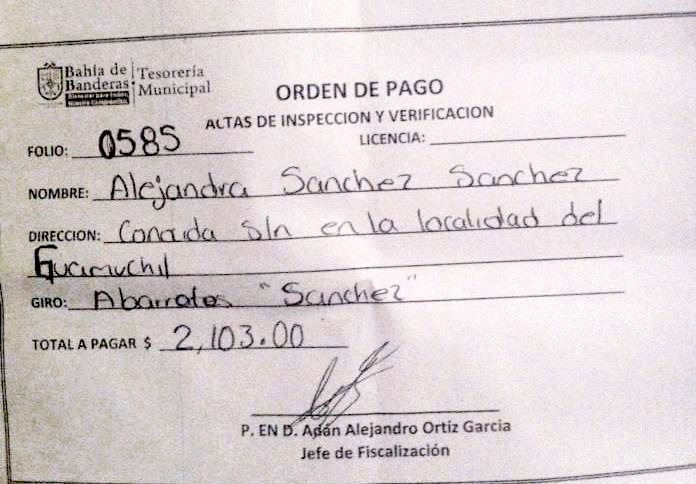 Bahía de Banderas
Tesorería Municipal
ORDEN DE PAGO
ALTAS DE INSPECCION Y VERIFICACION
FOLIO: 0585 LICENCIA:
NOMBRE: Alejandra Sanchez Sanchez
DIRECCION: Conocida S/n en la localidad del
Guamuchil
GIRO: Abarrotes "Sanchez"
TOTAL A PAGAR $ 2,103.00
P. EN D. Adán Alejandro Ortíz Garcia
Jefe de Fiscalización